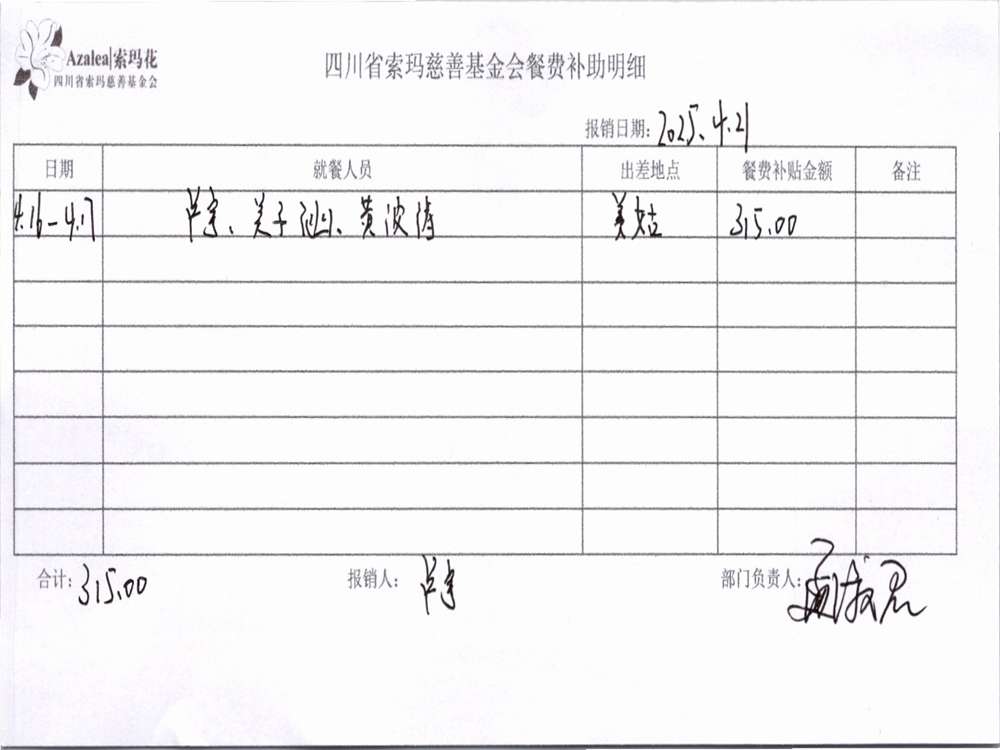 Azalea|索玛花
四川省索玛慈善基金会
四川省索玛慈善基金会餐费补助明细
报销日期: 2025.4.21
日期 就餐人员 出差地点 餐费补贴金额 备注
4.16-4.17 卢宇、 黄波涛 美姑 315.00
合计: 315.00 报销人: 卢宇 部门负责人: